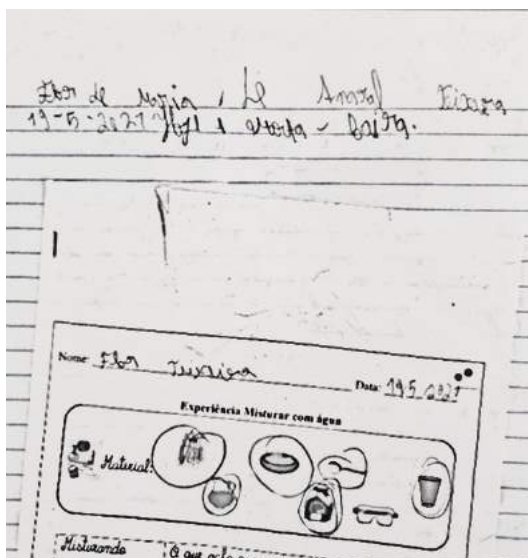 Flor de Maria, de Amral Teixara
19-5-2021 Hoje é
Nome: Flor Teixeira Data: 19 5 2021
Experiência Misturar com água
Material:
Misturando O que acho